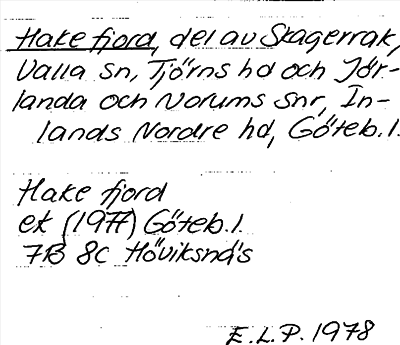 Hake fjord, del av Skagerrak,
Valla sn, Tjörns hd och Jör-
landa och Norums snr, In-
lands Nordre hd, Göteb. l.
Hake fjord
ek (1977) Göteb. l.
7B 8c Höviksnäs
E.L.P. 1978